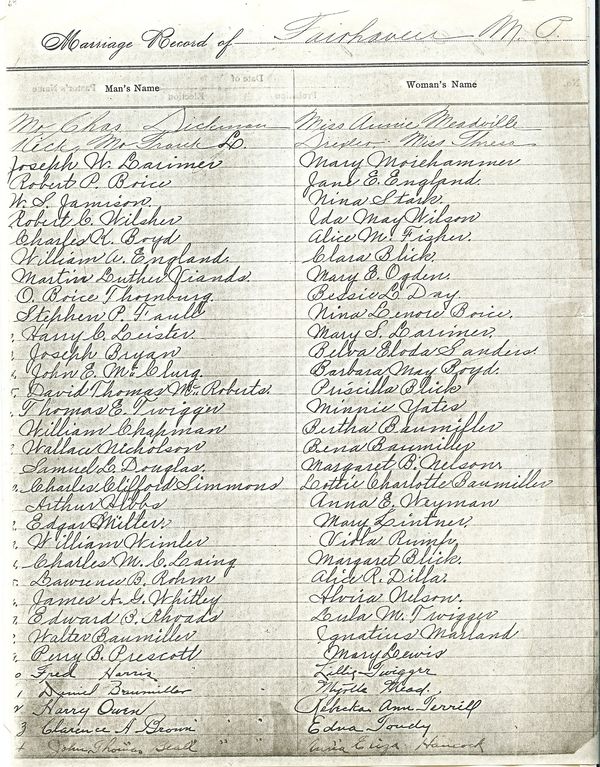 Marriage Record of Fairhaven M. P.
Man's Name Woman's Name
Mr. Chas. Dickman Miss Annie Meadville
Mr. Frank L. Miss
Joseph W. Larimer Mary Morehammer
Robert P. Boice Jane E. England.
W. S. Jamison. Nina Stark.
Robert C. Wilsher Ida May Wilson
Charles K. Boyd Alice M. Fisher.
William A. England. Clara Blick.
Martin Luther Viands. Mary E. Ogden.
O. Boice Thornburg. Bessie L. Day.
Stephen P. Faull Nina Lenore Boice.
Harry C. Leister. Mary S. Larimer.
Joseph Bryan Belva Eloda Sanders.
John E. McClurg. Barbara May Boyd.
David Thomas McRoberts. Priscilla Blick
Thomas E. Twigger Minnie Yates
William Chapman Bertha Baumiller
Wallace Nicholson Bena Baumiller
Samuel L. Douglas. Margaret B. Nelson.
Charles Clifford Simmons Lottie Charlotte Baumiller
Arthur Hibbs Anna E. Weyman
Edgar Miller. Mary Lintner.
William Wimler Viola Rump.
Charles M. C. Laing Margaret Blick.
Lawrence B. Rohm Alice R. Dilla.
James A. G. Whitley Alvira Nelson.
Edward B. Rhoads Lula M. Twigger
Walter Baumiller Ignatius Marland
Perry B. Prescott Mary Lewis
Fred Harris Lillie Twigger
Daniel Braumiller Myrtle Mead.
Harry Owen Rebecka Ann Terrill
3 Clarence A Brown Edna Toudy
John Thomas Seall Eliza Hancock